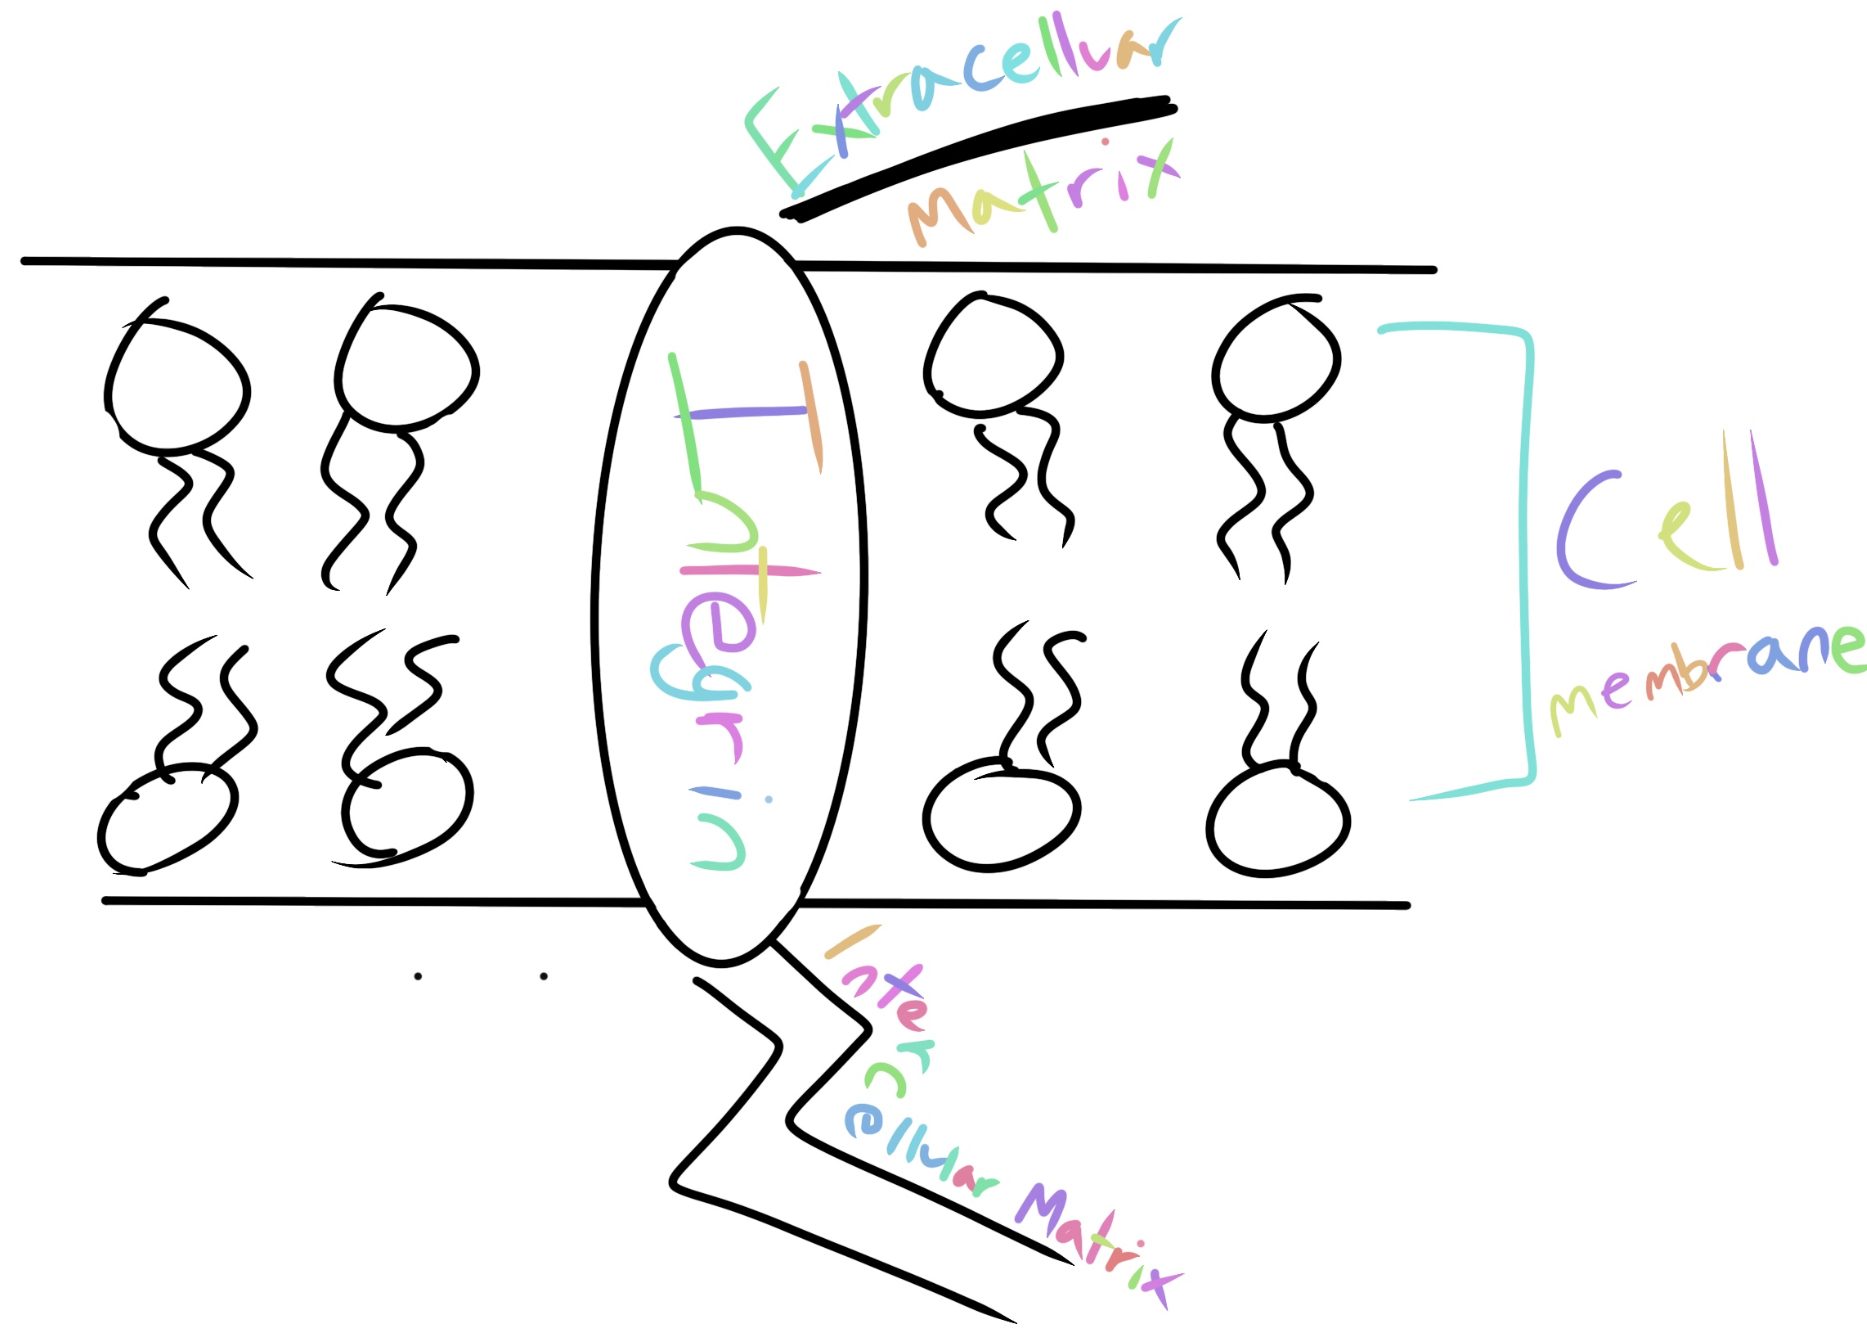 Extracelluar
Matrix
Integrin
Cell
membrane
Inter
cellular Matrix